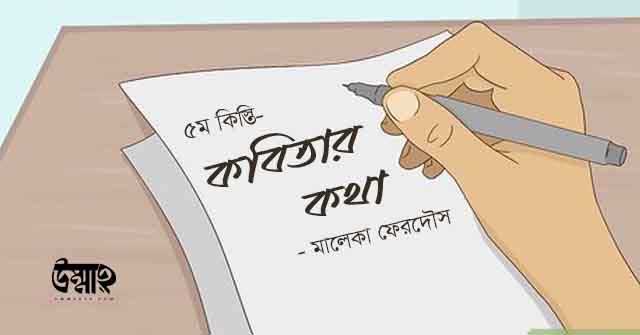 ৫ম কিস্তি-
কবিতার
কথা
- মালেকা ফেরদৌস
উম্মাহ